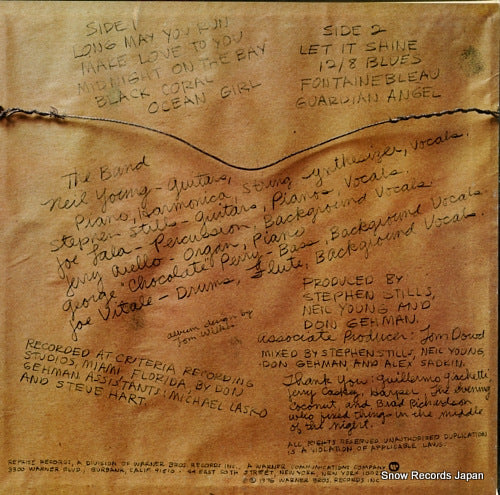 SIDE 1
LONG MAY YOU RUN
MAKE LOVE TO YOU
MIDNIGHT ON THE BAY
BLACK CORAL
OCEAN GIRL
SIDE 2
LET IT SHINE
12/8 BLUES
FONTAINEBLEAU
GUARDIAN ANGEL
The Band
Neil Young - Guitars, String Synthesizer, Vocals.
Piano, Harmonica
Stephen Stills - Guitars, Piano, Vocals.
Joe Lala - Percussion, Background Vocals.
Jerry Aiello - Organ, Piano
George "Chocolate" Perry - Bass, Background Vocals.
Joe Vitale - Drums, Flute, Background Vocals.
album design by
Tom Wilkes
RECORDED AT CRITERIA RECORDING
STUDIOS, MIAMI FLORIDA, BY DON
GEHMAN ASSISTANTS: MICHAEL LASKO
AND STEVE HART
PRODUCED BY
STEPHEN STILLS,
NEIL YOUNG AND
DON GEHMAN.
associate Producer: Tom Dowd
MIXED BY STEPHEN STILLS, NEIL YOUNG,
DON GEHMAN AND ALEX SADKIN.
Thank You: Guillermo Giachetti
Jerry Harper, The evening
Coconut and Brad Richardson
who fixed things in the middle
of the night.
ALL RIGHTS RESERVED. UNAUTHORIZED DUPLICATION
IS A VIOLATION OF APPLICABLE LAWS.
REPRISE RECORDS, A DIVISION OF WARNER BROS. RECORDS INC., A WARNER COMMUNICATIONS COMPANY
3300 WARNER BLVD., BURBANK, CALIF. 91510 • 44 EAST 50TH STREET, NEW YORK, NEW YORK 10022
© 1976 WARNER BROS. RECORDS INC.
Snow Records Japan